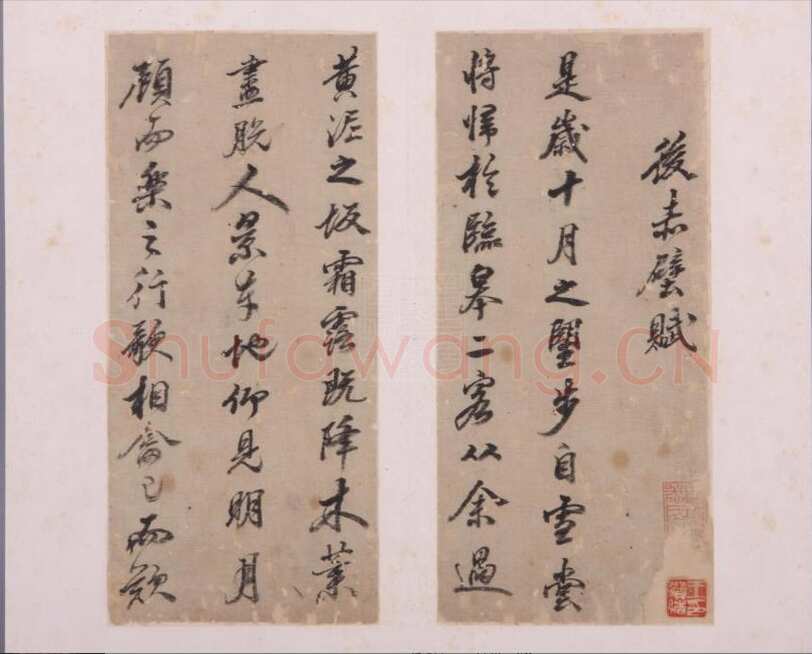 後赤壁賦
是歲十月之望步自雪堂
將歸於臨皋二客從余過
黃泥之坂霜露既降木葉
盡脫人景在地仰見明月
顧而樂之行歌相答已而歎
Shufawang.CN